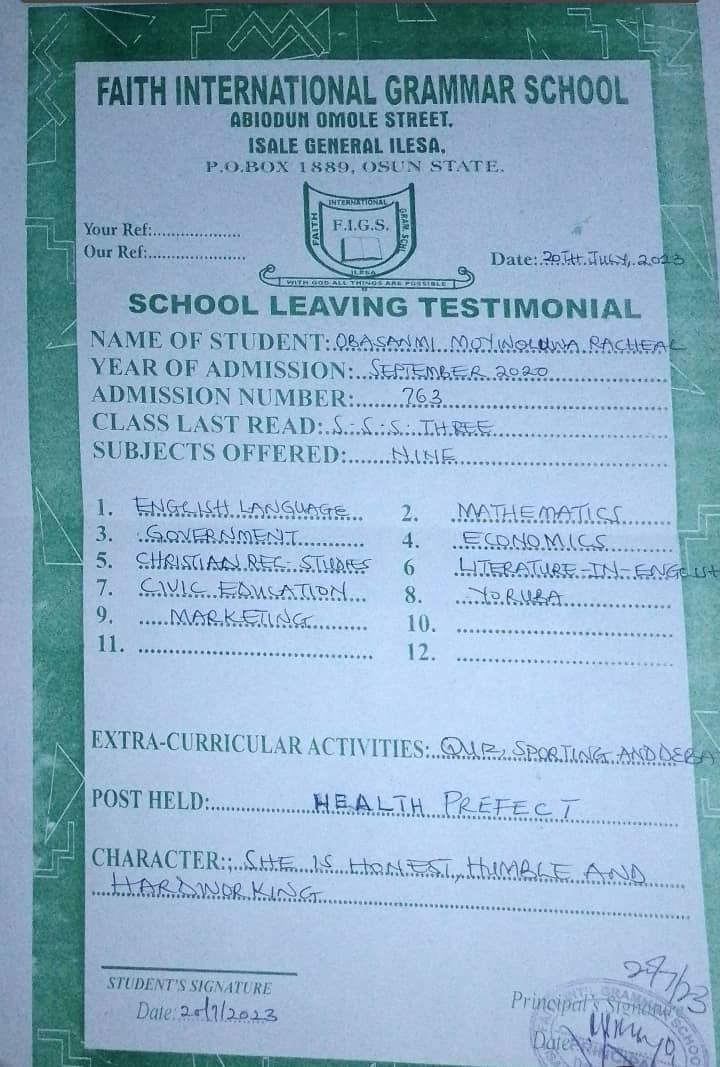 FAITH INTERNATIONAL GRAMMAR SCHOOL
ABIODUN OMOLE STREET,
ISALE GENERAL ILESA,
P.O.BOX 1889, OSUN STATE.
INTERNATIONAL
FAITH
F.I.G.S.
GRAM. SCH.
ILESA
WITH GOD ALL THINGS ARE POSSIBLE
Your Ref:....................
Our Ref:....................
Date: 20TH JULY, 2023
SCHOOL LEAVING TESTIMONIAL
NAME OF STUDENT: OBASANMI MOYINOLUWA RACHEAL
YEAR OF ADMISSION: SEPTEMBER 2020
ADMISSION NUMBER: 763
CLASS LAST READ: S.S.S. THREE
SUBJECTS OFFERED: NINE
1. ENGLISH LANGUAGE 2. MATHEMATICS
3. GOVERNMENT 4. ECONOMICS
5. CHRISTIAN REL. STUDIES 6 LITERATURE-IN-ENGLISH
7. CIVIC EDUCATION 8. YORUBA
9. MARKETING 10.
11. 12.
EXTRA-CURRICULAR ACTIVITIES: QUIZ, SPORTING AND DEBA
POST HELD: HEALTH PREFECT
CHARACTER:; SHE IS HONEST, HUMBLE AND
HARDWORKING
STUDENT'S SIGNATURE
Date: 20/7/2023
Principal's Signature
Date